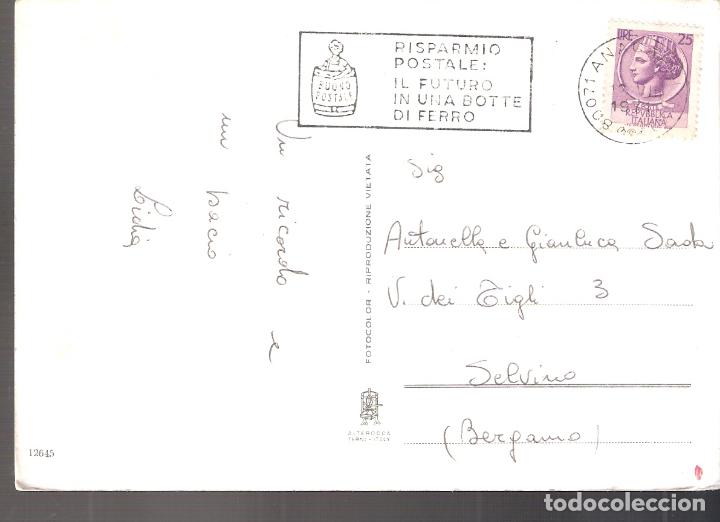 RISPARMIO
POSTALE:
IL FUTURO
IN UNA BOTTE
DI FERRO
BUONO
POSTALE
LIRE 25
REPVBBLICA
ITALIANA
80071 ANA
Un ricordo e
un bacio
Lidia
FOTOCOLOR - RIPRODUZIONE VIETATA
Sig
Antonella e Gianluca Sada
V. dei Tigli 3
Selvino
(Bergamo)
ALTEROCCA
TERNI - ITALY
12645
todocoleccion.net